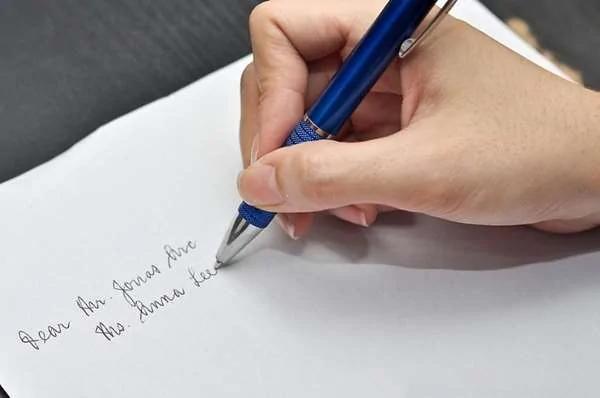 Dear Mr. Jonas Arc
Ms. Anna Lee